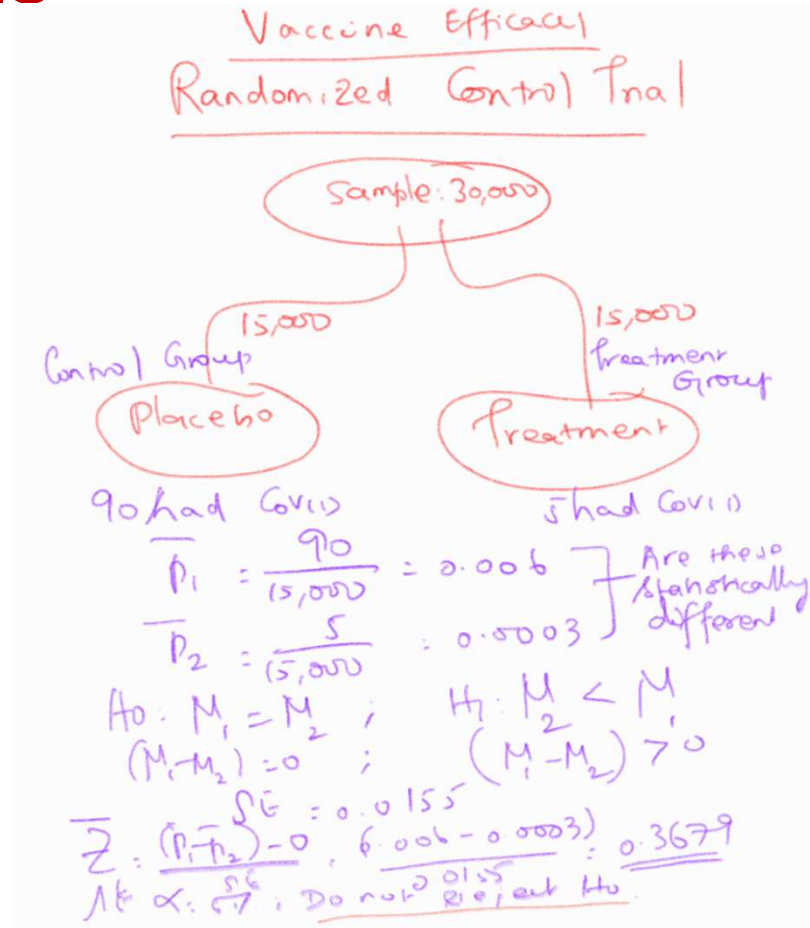 Vaccine Efficacy
Randomized Control Trial
Sample: 30,000
15,000
15,000
Control Group
Treatment Group
Placebo
Treatment
90 had Covid
5 had Covid
p̄₁ = 90/15,000 = 0.006
p̄₂ = 5/15,000 = 0.0003
Are these
statistically
different
H0: M₁ = M₂ ; H1: M₂ < M₁
(M₁-M₂) = 0 ; (M₁-M₂) > 0
SE = 0.0155
Z = (p̄₁-p̄₂)-0/SE = (0.006-0.0003)/0.0155 = 0.3679
At α: ; Do not Reject H0